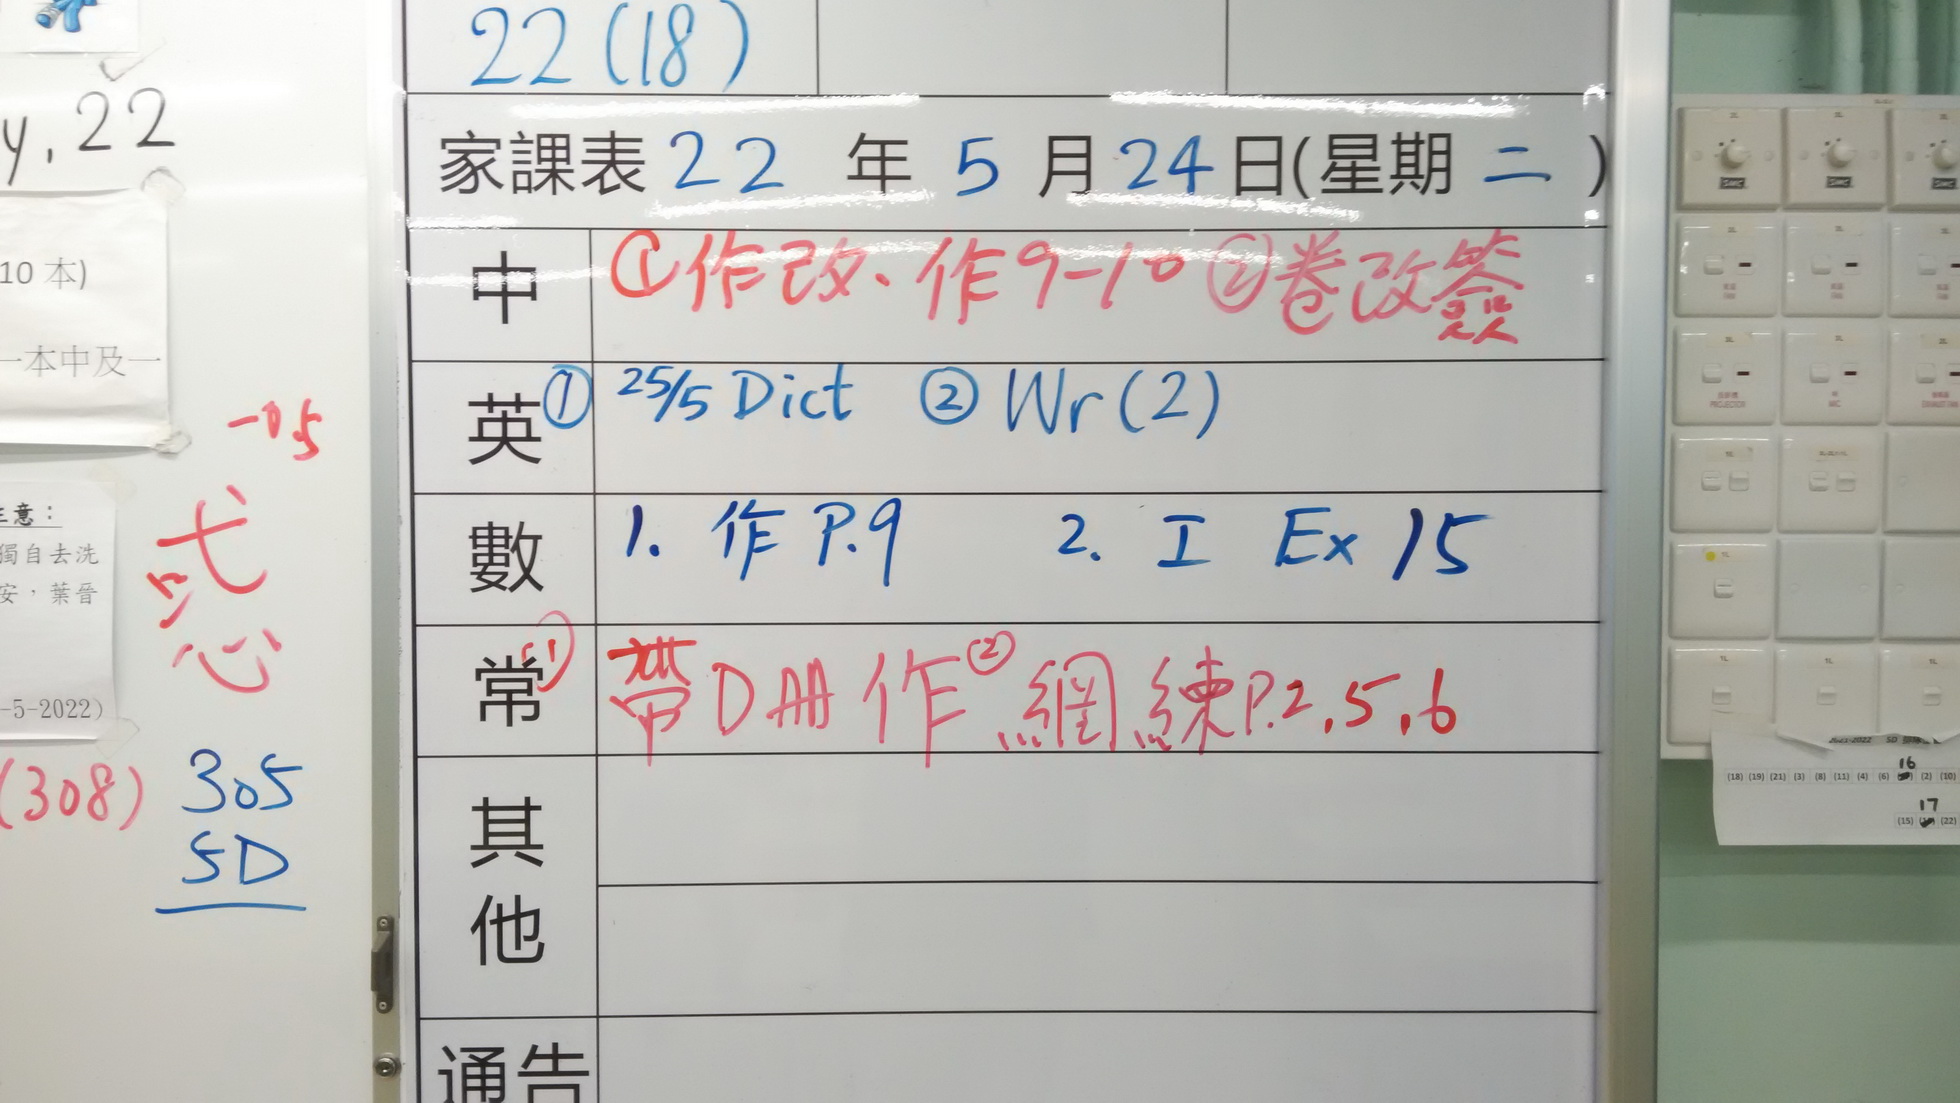 22(18)
家課表 22 年 5 月 24 日(星期 二 )
中 ①作改、作9-10 ②卷改簽
英 ① 25/5 Dict ② Wr(2)
數 1. 作 P.9 2. I Ex 15
常 ① 帶D冊作 ② 網練P.2,5,6
其他
通告
y, 22
10 本)
一本中及一
-0.5
意：
獨自去洗
安，葉晉
-5-2022)
心
(308)
305
5D
PROJECTOR
MIC
EXHAUST FAN
2021-2022 5D
16
(18) (19) (21) (3) (8) (11) (4) (6) (2) (10)
17
(15) (22)